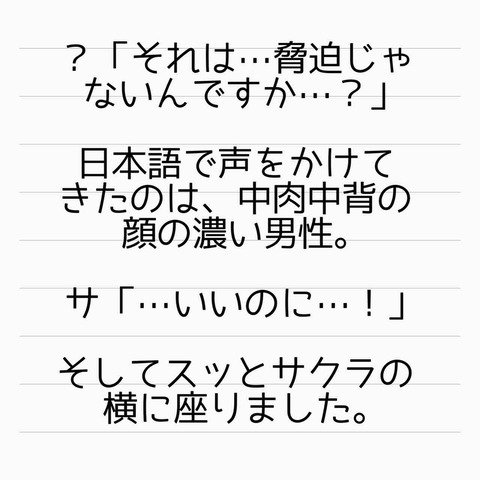 ？「それは…脅迫じゃ
ないんですか…？」
日本語で声をかけて
きたのは、中肉中背の
顔の濃い男性。
サ「…いいのに…！」
そしてスッとサクラの
横に座りました。